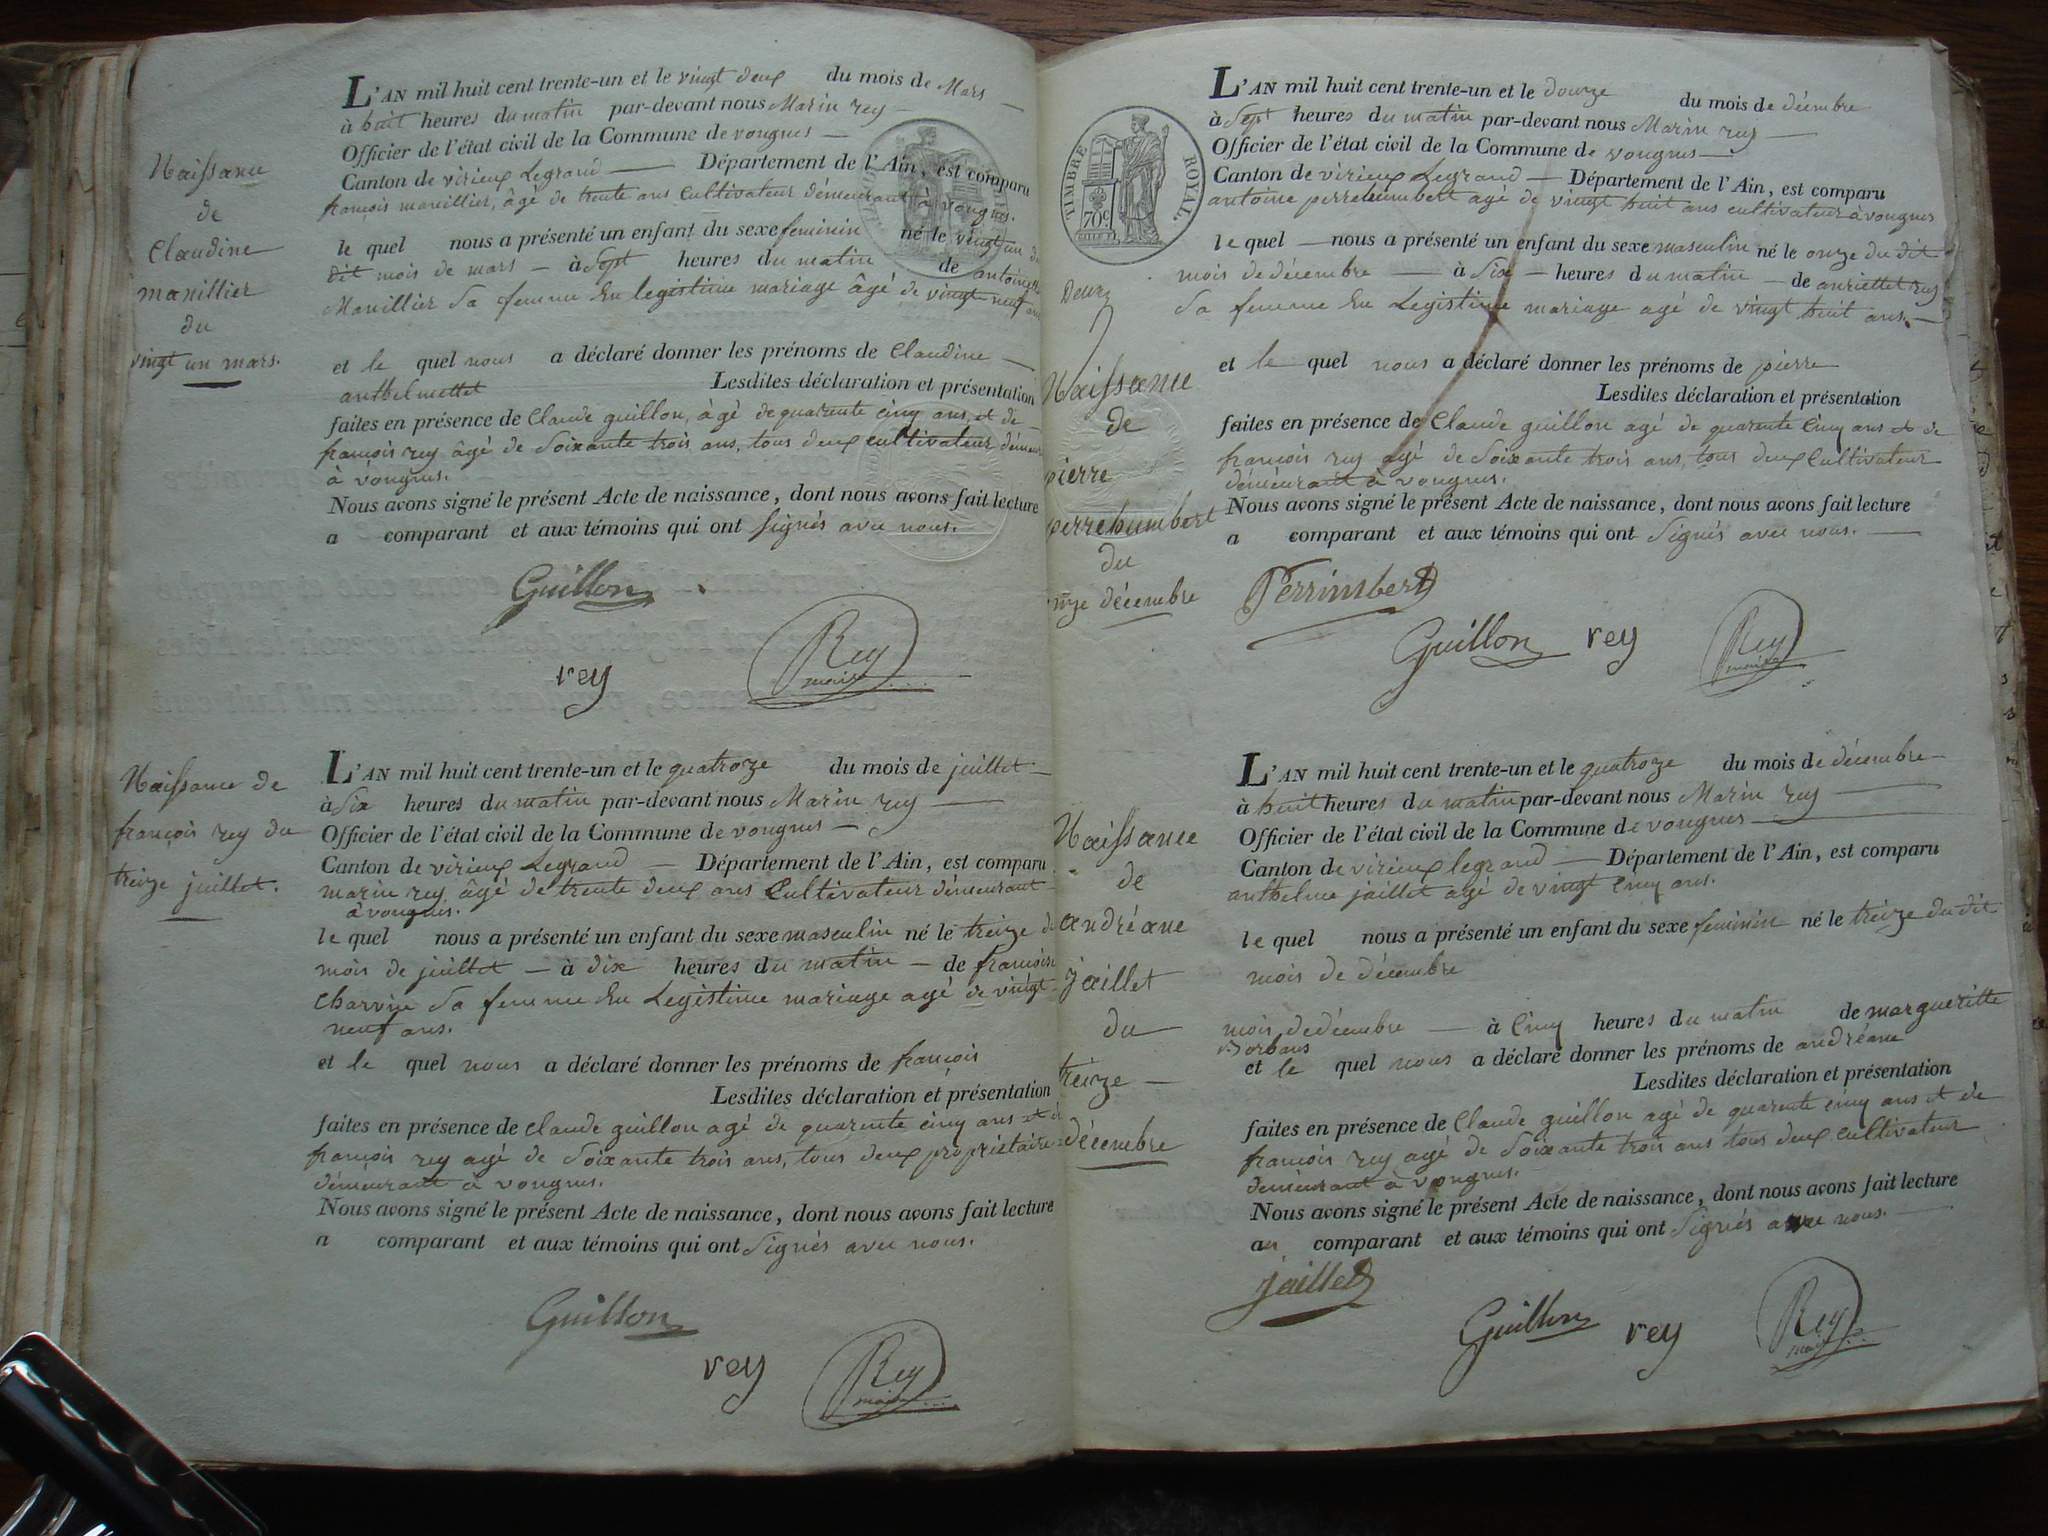 Naissance
de
Claudine
manillier
du
vingt un mars.
L'AN mil huit cent trente-un et le vingt deux du mois de Mars
à huit heures du matin par-devant nous Marin rey
Officier de l'état civil de la Commune de vongnes
Canton de virieux Legrand Département de l'Ain, est comparu
françois manillier, âgé de trente ans cultivateur démeurant à vongnes.
le quel nous a présenté un enfant du sexe feminin né le vingt un du
dit mois de mars à Sept heures du matin de antoinette
Manillier Sa femme En legistime mariage âgé de vingt neuf ans
et le quel nous a déclaré donner les prénoms de Claudine
anthelmettet Lesdites déclaration et présentation
faites en présence de Claude guillon, àgé de quarente cinq ans, et de
françois rey âgé de Soixante trois ans, tous deux cultivateur démeurant
à vongnes.
Nous avons signé le présent Acte de naissance, dont nous avons fait lecture
a comparant et aux témoins qui ont Signés avec nous.
Guillon
rey
Rey
maire
Naissance de
françois rey du
treize juillet.
L'AN mil huit cent trente-un et le quatroze du mois de juillet
à Six heures du matin par-devant nous Marin rey
Officier de l'état civil de la Commune de vongnes
Canton de virieux Legrand Département de l'Ain, est comparu
marin rey âgé de trente deux ans Cultivateur démeurant
à vongnes.
le quel nous a présenté un enfant du sexe masculin né le treize du
mois de juillet à dix heures du matin de françoise
Charvin Sa femme En Legistime mariage agé de vingt
neuf ans.
et le quel nous a déclaré donner les prénoms de françois
Lesdites déclaration et présentation
faites en présence de Claude guillon agé de quarente cinq ans et de
françois rey agé de Soixante trois ans, tous deux propriétaire
démeurant à vongnes.
Nous avons signé le présent Acte de naissance, dont nous avons fait lecture
a comparant et aux témoins qui ont Signés avec nous.
Guillon
rey
Rey
maire
TIMBRE ROYAL
70c
Naissance
de
pierre
perrehumbert
du
onze décembre
L'AN mil huit cent trente-un et le douze du mois de décembre
à Sept heures du matin par-devant nous Marin rey
Officier de l'état civil de la Commune de vongnes
Canton de virieux Legrand Département de l'Ain, est comparu
antoine perrehumbert agé de vingt huit ans cultivateur à vongnes
le quel nous a présenté un enfant du sexe masculin né le onze du dit
mois de décembre à Six heures du matin de anriettet rey
Sa femme En Legistime mariage agé de vingt huit ans.
et le quel nous a déclaré donner les prénoms de pierre
Lesdites déclaration et présentation
faites en présence de Claude guillon agé de quarente cinq ans et de
françois rey agé de Soixante trois ans, tous deux Cultivateur
démeurant à vongnes.
Nous avons signé le présent Acte de naissance, dont nous avons fait lecture
a comparant et aux témoins qui ont Signés avec nous.
Perrimbert
Guillon rey
Rey
maire
Naissance
de
andréane
jaillet
du
treize
décembre
L'AN mil huit cent trente-un et le quatroze du mois de décembre
à huit heures du matin par-devant nous Marin rey
Officier de l'état civil de la Commune de vongnes
Canton de virieux legrand Département de l'Ain, est comparu
anthelme jaillet agé de vingt Cinq ans.
le quel nous a présenté un enfant du sexe feminin né le treize du dit
mois de décembre
mois de décembre à Cinq heures du matin de margueritte
Borbans
et le quel nous a déclaré donner les prénoms de andréane
Lesdites déclaration et présentation
faites en présence de Claude guillon agé de quarente cinq ans et de
françois rey agé de Soixante trois ans tous deux cultivateur
démeurant à vongnes.
Nous avons signé le présent Acte de naissance, dont nous avons fait lecture
au comparant et aux témoins qui ont Signés avec nous.
jaillet
Guillon rey
Rey
maire